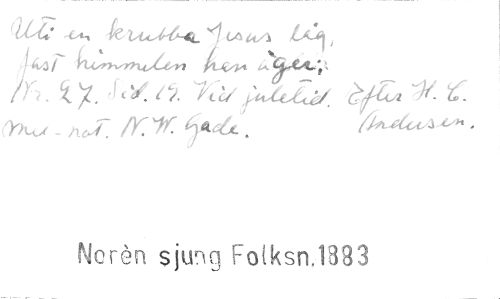 Uti en krubba Jesus låg,
fast himmelen han äger;
Nr. 27. Sid. 19. Vid juletid. Efter H. C.
mel-not. N. W. Gade. Andersen.
Norèn sjung Folksn.1883